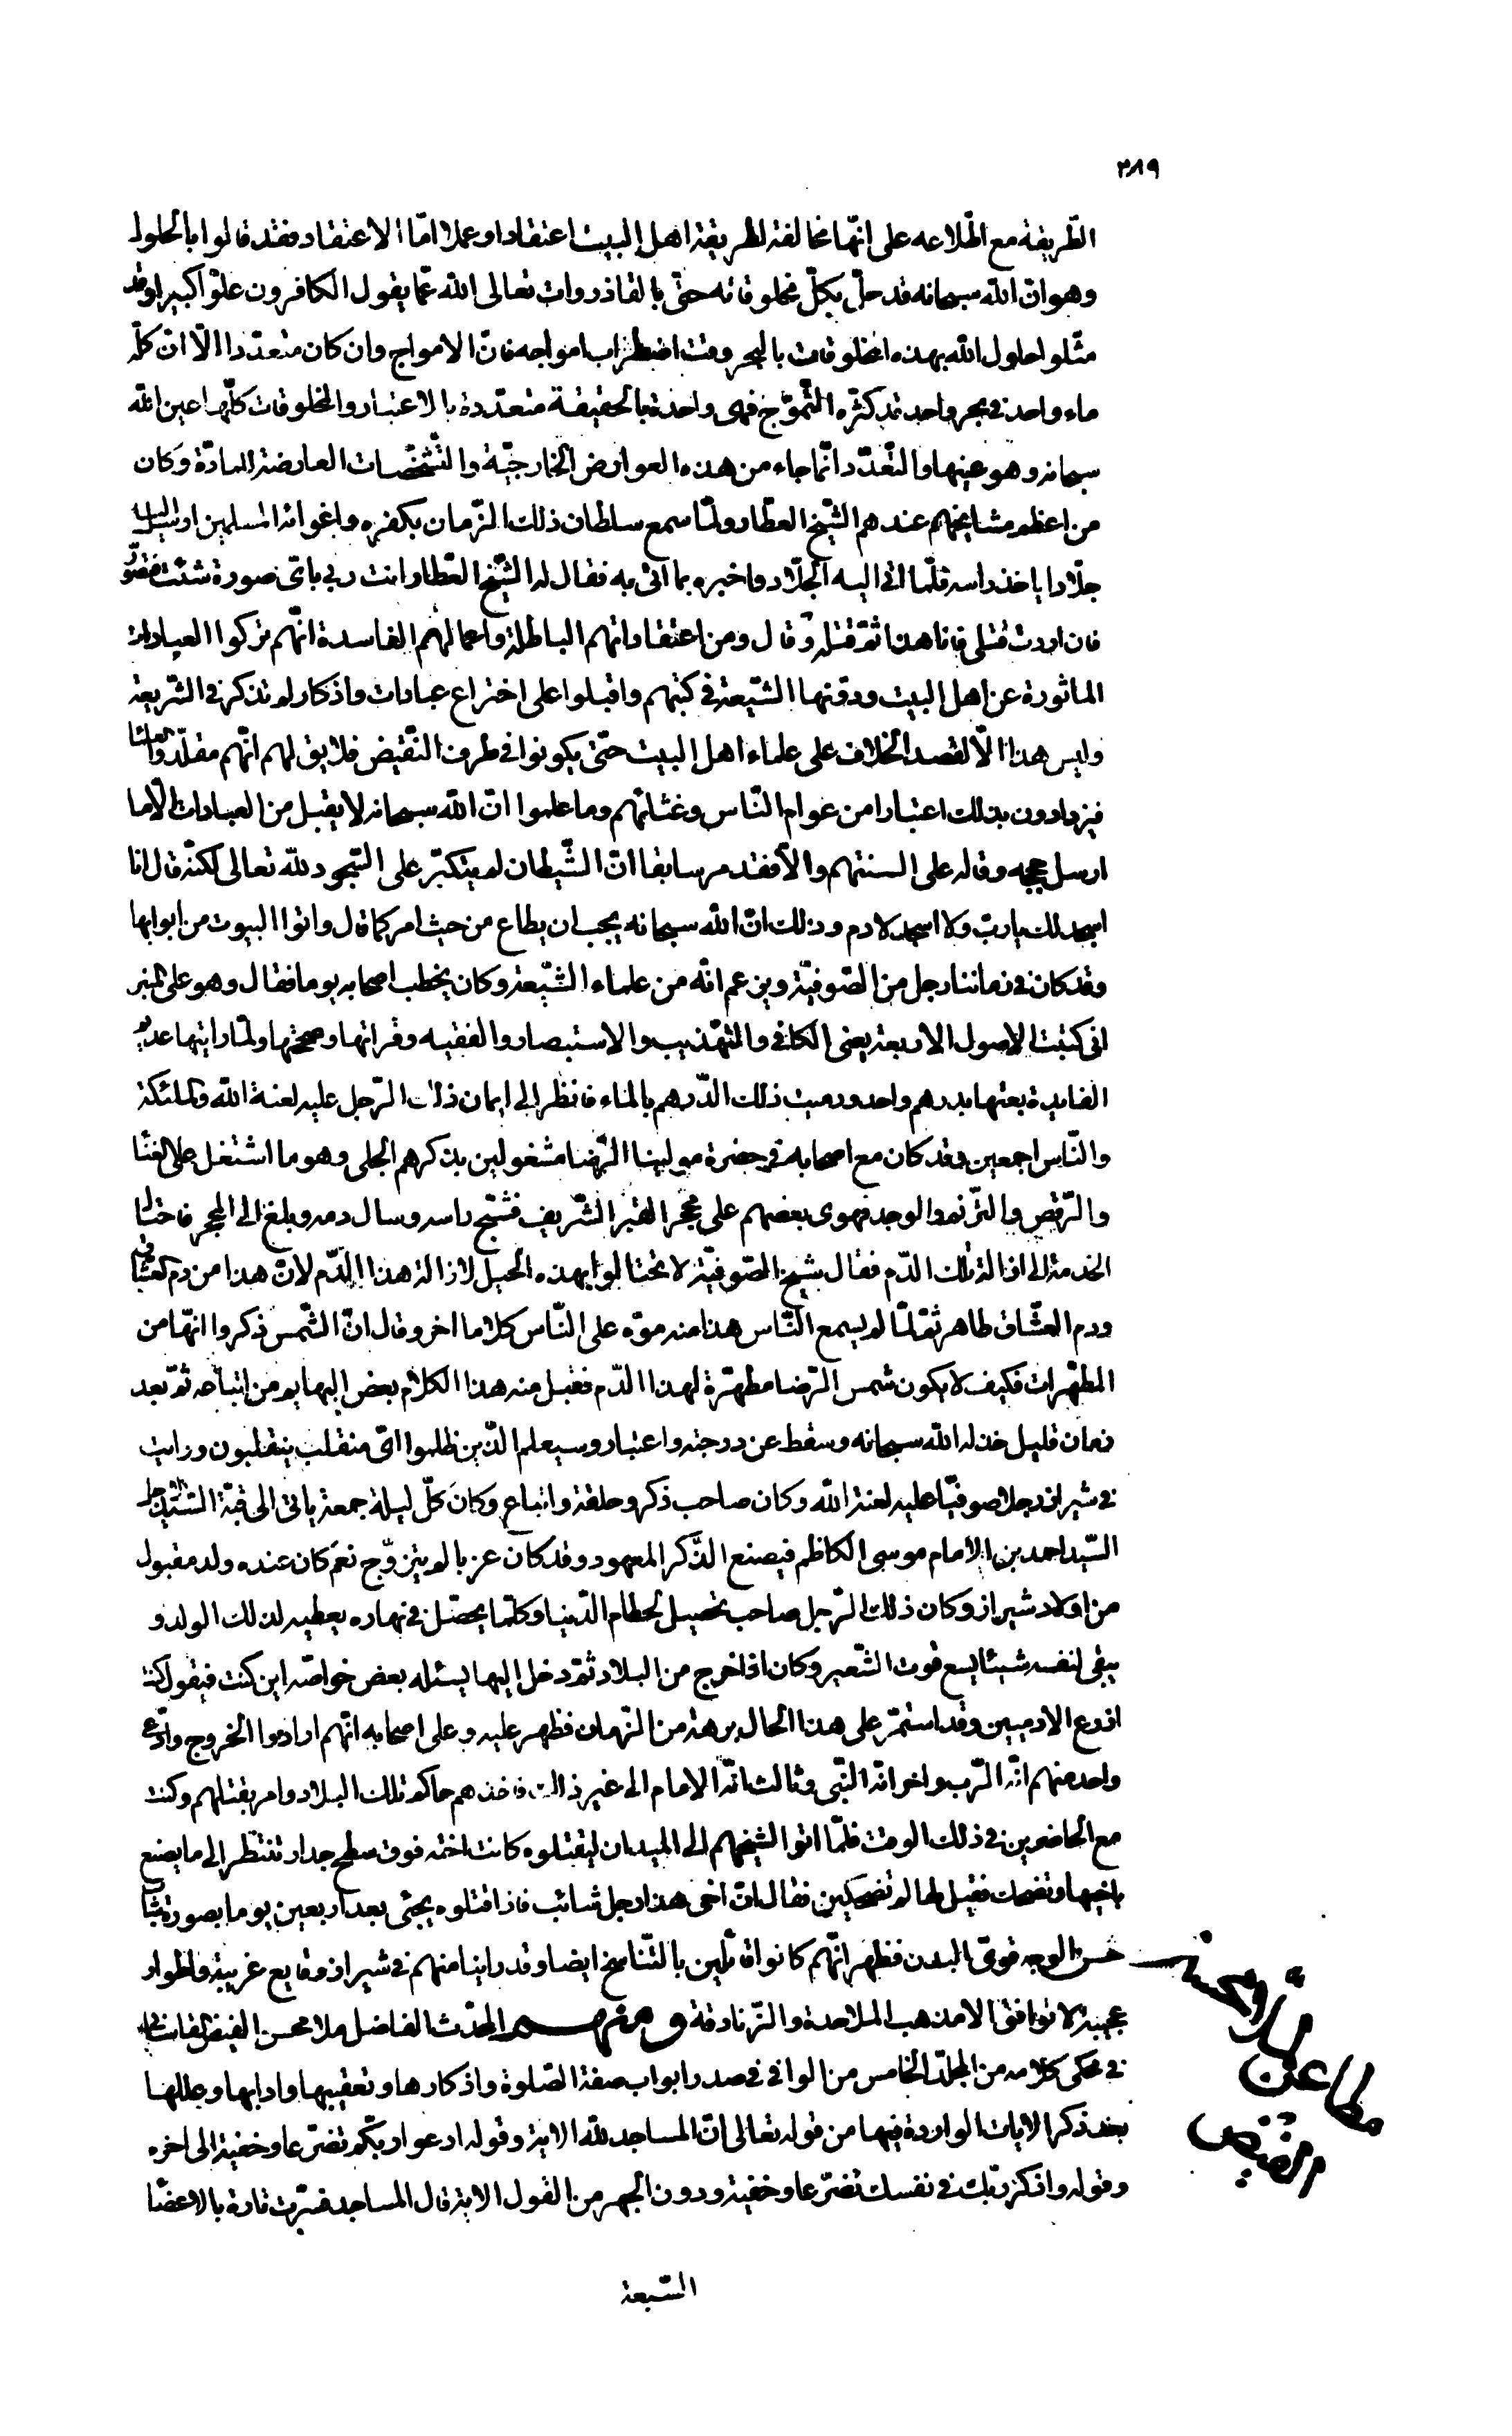 ٣٨٩
الطّريقة مع اطّلاعه على انّها مخالفة لطريقة اهل البيت اعتقادا وعملا امّا الاعتقاد فقد قالوا بالحلول
وهو انّ الله سبحانه قد حلّ بكلّ مخلوقاته حتّى بالقاذروات تعالى الله عمّا يقول الكافرون علوّا كبيرا وقد
مثّلوا حلول الله بهذه المخلوقات بالبحر وقت اضطراب امواجه فانّ الامواج وان كان متعدّدا الّا انّ كلّه
ماء واحد في بحر واحد قد كثّره التّموّج فهى واحدة بالحقيقة متعدّدة بالاعتبار والمخلوقات كلّها عين الله
سبحانه وهو عينها والتّعدّد انّما جاء من هذه العوارض الخارجيّة والتّشخّصات العارضة للمادّة وكان
من اعظم مشايخهم عندهم الشّيخ العطّار ولمّا سمع سلطان ذلك الزّمان بكفره واغوائه المسلمين ارسل اليه
جلّادا ياخذ راسه فلمّا اتى اليه الجلّاد واخبره بما اتى به فقال له الشّيخ العطّار انت ربي باىّ صورة شئت فتصوّر
فان اردت قتلى فانا هذا ثمّ قتله وقال ومن اعتقاداتهم الباطلة واعمالهم الفاسدة انّهم تركوا العبادات
الماثورة عن اهل البيت ودوّنها الشّيعة في كتبهم واقبلوا على اختراع عبادات واذكار لم تذكر في الشّريعة
وليس هذا الّا لقصد الخلاف على علماء اهل البيت حتّى يكونوا في طرف النّقيض فلا يق لهم انّهم مقلّدوا العلما
فيزدادون بذلك اعتبارا من عوام النّاس وغثائهم وما علموا انّ الله سبحانه لا يقبل من العبادات الّا ما
ارسل حججه وقاله على السنتهم والّا فقد مر سابقا انّ الشّيطان لم يتكبّر على السّجود لله تعالى لكنّه قال انا
اسجد لك يا ربّ ولا اسجد لادم وذلك انّ الله سبحانه يجب ان يطاع من حيث امر كما قال واتوا البيوت من ابوابها
وقد كان في زماننا رجل من الصّوفيّة ويزعم انّه من علماء الشّيعة وكان يخطب اصحابه يوما فقال وهو على المنبر
انّى كتبت الاصول الاربعة يعنى الكافي والتّهذيب والاستبصار والفقيه وقراتها وصحّحتها ولمّا رايتها عديمة
الفايدة بعتها بدرهم واحد ورميت ذلك الدّرهم بالماء فانظر الى ايمان ذلك الرّجل عليه لعنة الله والملئكة
والنّاس اجمعين وقد كان مع اصحابه في حضرة مولينا الرّضا مشغولين بذكرهم الجلى وهو ما اشتغل على الغنا
والرّقص والترّنم والوجد فهوى بعضهم على محجر القبر الشّريف فشجّ راسه وسال دمه وبلغ الى المحجر فاحتال
الخدمة الى ازالة تلك الدّم فقال شيخ الصّوفيّة لا تحتالوا بهذه الحيل لازالة هذا الدّم لانّ هذا من دم العشّاق
ودم العشّاق طاهر ثمّ لمّا لم يسمع النّاس هذا منه موّه على النّاس كلاما اخر وقال انّ الشّمس ذكروا انّها من
المطهّرات فكيف لا يكون شمس الرّضا مطهّرة لهذا الدّم فقبل منه هذا الكلام بعض البهايم من اتباعه ثمّ بعد
زمان قليل خذله الله سبحانه وسقط عن درجته واعتباره وسيعلم الّذين ظلموا اىّ منقلب ينقلبون ورايت
في شيراز رجلا صوفيّا عليه لعنة الله وكان صاحب ذكر وحلقة واتباع وكان كلّ ليلة جمعة ياتى الى قبّة السّيّد
السّيّد احمد بن الامام موسى الكاظم فيصنع الذّكر المعهود وقد كان عزبا لم يتزوّج نعم كان عنده ولد مقبول
من اولاد شيراز وكان ذلك الرّجل صاحب تحصيل لحطام الدّنيا وكلّما يحصّل في نهاره يعطيه لذلك الولد و
يبقى لنفسه شيئا يسع قوت الشّعير وكان اذا خرج من البلاد ثمّ دخل اليها يسئله بعض خواصّه اين كنت فيقول كنت
ازرع الادميين وقد استمرّ على هذا الحال برهة من الزّمان فظهر عليه وعلى اصحابه انّهم ارادوا الخروج وادّعى
واحد منهم انّه الرّب واخر انّه النّبى وثالث انّه الامام الى غير ذلك فاخذهم حاكم تلك البلاد وامر بقتلهم وكنت
مع الحاضرين في ذلك الوقت فلمّا اتوا الشيخهم الى الميدان ليقتلوه كانت اخته فوق سطح جدار تنتظر الى ما يصنع
باخيها وتضحك فقيل لها لم تضحكين فقال انّ اخى هذا رجل شائب فاذا قتلوه يجئى بعد اربعين يوما بصورة شابّ
حسن الوجه قوىّ البدن فظهر انّهم كانوا قائلين بالتّناسخ ايضا وقد راينا منهم في شيراز وقايع غريبة واطوار
عجيبة لا توافق الا مذهب الملاحدة والزّنادقة ومنهم المحدّث الفاضل ملا محسن الفيض القاساني
في محكى كلامه من المجلّد الخامس من الوافي في صدر ابواب صفة الصّلوة واذكارها وتعقيبها وادابها وعللها
بعد ذكر الايات الواردة فيها من قوله تعالى انّ المساجد لله الاية وقوله ادعوا ربّكم تضرّعا وخفية الى اخره
وقوله واذكر ربّك في نفسك تضرّعا وخفية ودون الجهر من القول الاية قال المساجد فسّرت تارة بالاعضا
السّبعة
مطاعن ملا محسن
الفيض